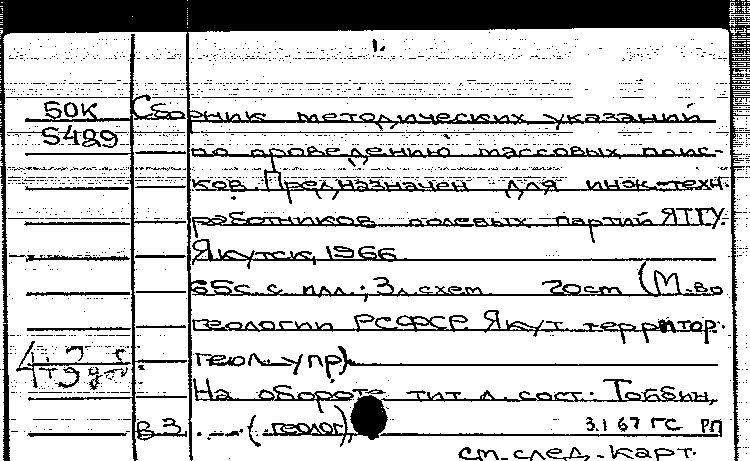 1.
БОК Сборник методических указаний
S489 по проведению массовых поис-
ков. Предназначен для инж.-техн.
работников полевых партий ЯТГУ.
Якутск, 1966
65с. с илл.; 3л.схем 20см (М-во
геологии РСФСР. Якут. территор.
геол. упр).
На обороте тит л. сост: Тоббин,
В З. .... (геолог), 3.1 67 ГС РП
см. след. карт.